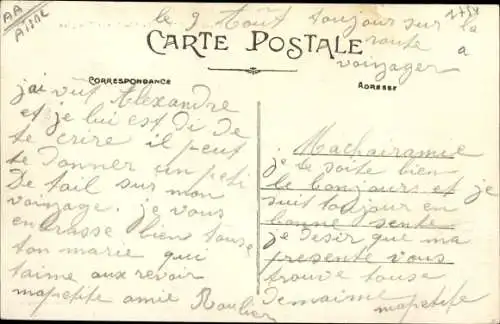 AA
AISNE
le 9 Août toujour sur la
route a
voiyager
CARTE POSTALE
CORRESPONDANCE
ADRESSE
jai vût Alexandre
et je lui est di de
te crire il peut
te donner un peti
De tail sur mon
voiyage. je vous
enbrasse bien touse
ton marie qui
taime aux revoir
mapetite amie
Machairamie
je te soite bien
le bonjours et je
suit toujour en
bonne sente
je desir que ma
presente vous
trouve touse
demaime mapetite